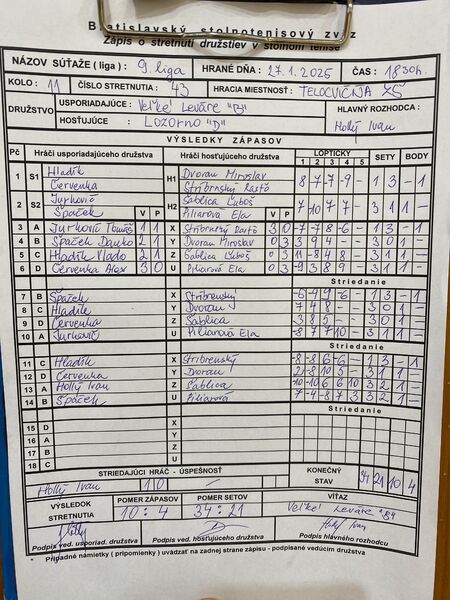 Bratislavský stolnotenisový zväz
Zápis o stretnutí družstiev v stolnom tenise
NÁZOV SÚŤAŽE ( liga ) : 9. liga HRANÉ DŇA : 27.1.2025 ČAS : 18 30h.
KOLO : 11 ČÍSLO STRETNUTIA : 43 HRACIA MIESTNOSŤ : TELOCVIČŇA ZŠ
DRUŽSTVO USPORIADAJÚCE : Veľké Leváre "B" HLAVNÝ ROZHODCA :
HOSŤUJÚCE : LOZORNO "D" Hollý Ivan
VÝSLEDKY ZÁPASOV
Pč Hráči usporiadajúceho družstva Hráči hosťujúceho družstva LOPTIČKY SETY BODY
1 2 3 4 5
1 S1 Hladík H1 Dvoran Miroslav 8 -7 -7 -9 - 1 3 - 1
Červenka Stribrnský Rasťo
2 S2 Jurkovič H2 Sablica Ľuboš 7 -10 7 7 - 3 1 1 -
Špaček Piliarová Ela
V P V P
3 A Jurkovič Tomáš 1 1 X Stribrnský Rasťo 3 0 -7 -7 8 -6 - 1 3 - 1
4 B Špaček Danko 2 1 Y Dvoran Miroslav 0 3 3 9 4 - - 3 0 1 -
5 C Hladík Vlado 2 1 Z Sablica Ľuboš 0 3 11 -8 4 8 - 3 1 1 -
6 D Červenka Alex 3 0 U Piliarová Ela 0 3 -9 3 8 9 - 3 1 1 -
Striedanie
7 B Špaček X Stribrenský -5 -4 9 -6 - 1 3 - 1
8 C Hladík Y Dvoran 7 4 8 - - 3 0 1 -
9 D Červenka Z Sablica 3 8 5 - - 3 0 1 -
10 A Jurkovič U Piliarová Ela -8 7 7 10 - 3 1 1 -
Striedanie
11 C Hladík X Stribrenský -8 -8 6 -6 - 1 3 - 1
12 D Červenka Y Dvoran
13 A Hollý Ivan Z Sablica
14 B Špaček U Piliarová 7 -4 -8 7 3 3 2 1 -
Striedanie
15 D X
16 A Y
17 B Z
18 C U
STRIEDAJÚCI HRÁČ - ÚSPEŠNOSŤ KONEČNÝ STAV 34 21 10 4
Hollý Ivan 1 0 /
VÝSLEDOK STRETNUTIA POMER ZÁPASOV POMER SETOV VÍŤAZ
10 : 4 34 : 21 Veľké Leváre "B"
Podpis ved. usporiad. družstva Podpis ved. hosťujúceho družstva Podpis hlavného rozhodcu
* Prípadné námietky ( pripomienky ) uvádzať na zadnej strane zápisu - podpísané vedúcim družstva